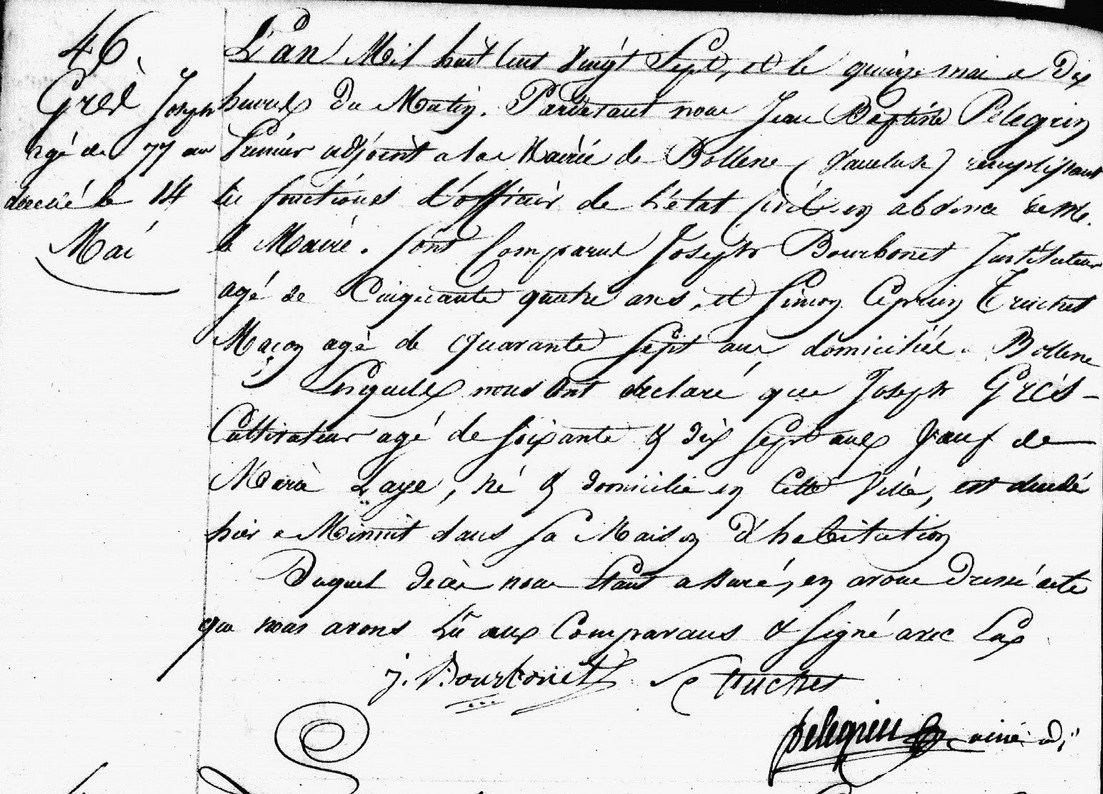 46
Grès Joseph
agé de 77 ans
decedé le 14
Mai
L'an Mil huit cent Vingt Sept, et le quinze mai a dix
heures du Matin. Pardevant nous Jean Baptiste Pelegrin
Premier adjoint a la Mairie de Bollene (Vaucluse) remplissant
les fonctions d'officier de L'état Civil en absence de Mr.
le Maire. Sont Comparus Joseph Bourbonet Instituteur
agé de Cinquante quatre ans, et Simon Ceprien Truchet
Maçon agé de Quarante Sept ans domiciliés a Bollene
Lesquels nous ont déclaré que Joseph Grès -
Cultivateur agé de soixante & dix sept ans Veuf de
Marie Laye, né & domicilié en Cette Ville, est decedé
hier a Minuit dans sa Maison d'habitation
Duquel decès nous étant assuré, en avons dressé acte
que nous avons Lu aux Comparans & signé avec Eux
j. Bourbonet S C truchet
Pelegrin ainé adj